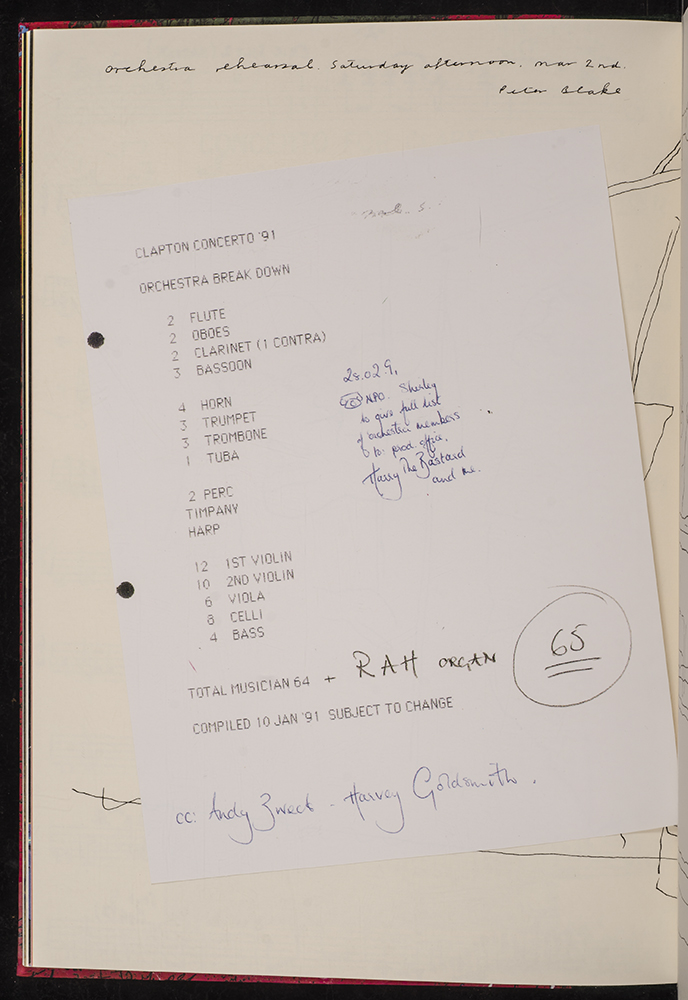 orchestra rehearsal. Saturday afternoon. mar 2nd.
Peter Blake
CLAPTON CONCERTO '91
ORCHESTRA BREAK DOWN
2 FLUTE
2 OBOES
2 CLARINET (1 CONTRA)
3 BASSOON
4 HORN
3 TRUMPET
3 TROMBONE
1 TUBA
2 PERC
TIMPANY
HARP
28.02.91
NPO. Shirley
to give full list
of orchestra members
to prod. office.
Harry The Bastard
and me.
12 1ST VIOLIN
10 2ND VIOLIN
6 VIOLA
8 CELLI
4 BASS
TOTAL MUSICIAN 64 + RAH ORGAN
65
COMPILED 10 JAN '91 SUBJECT TO CHANGE
cc: Andy Zweck - Harvey Goldsmith.